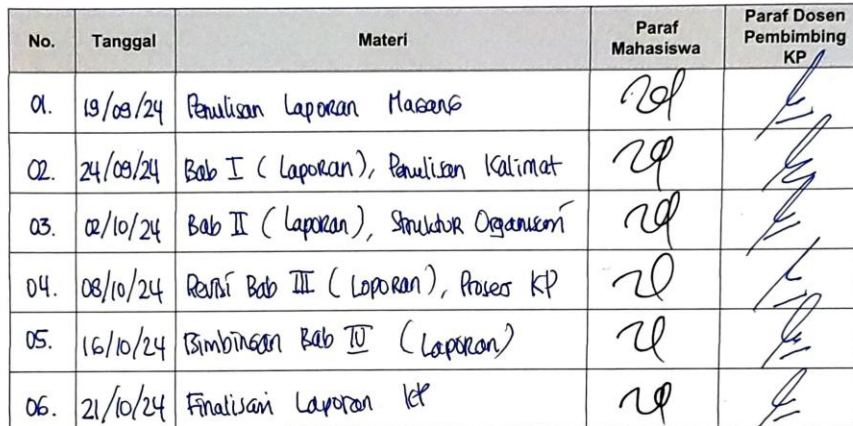 No. Tanggal Materi Paraf Mahasiswa Paraf Dosen Pembimbing KP
01. 19/09/24 Penulisan Laporan Magang
02. 24/09/24 Bab I (Laporan), Penulisan Kalimat
03. 02/10/24 Bab II (Laporan), Struktur Organisasi
04. 08/10/24 Revisi Bab III (Laporan), Proses KP
05. 16/10/24 Bimbingan Bab IV (Laporan)
06. 21/10/24 Finalisasi Laporan KP